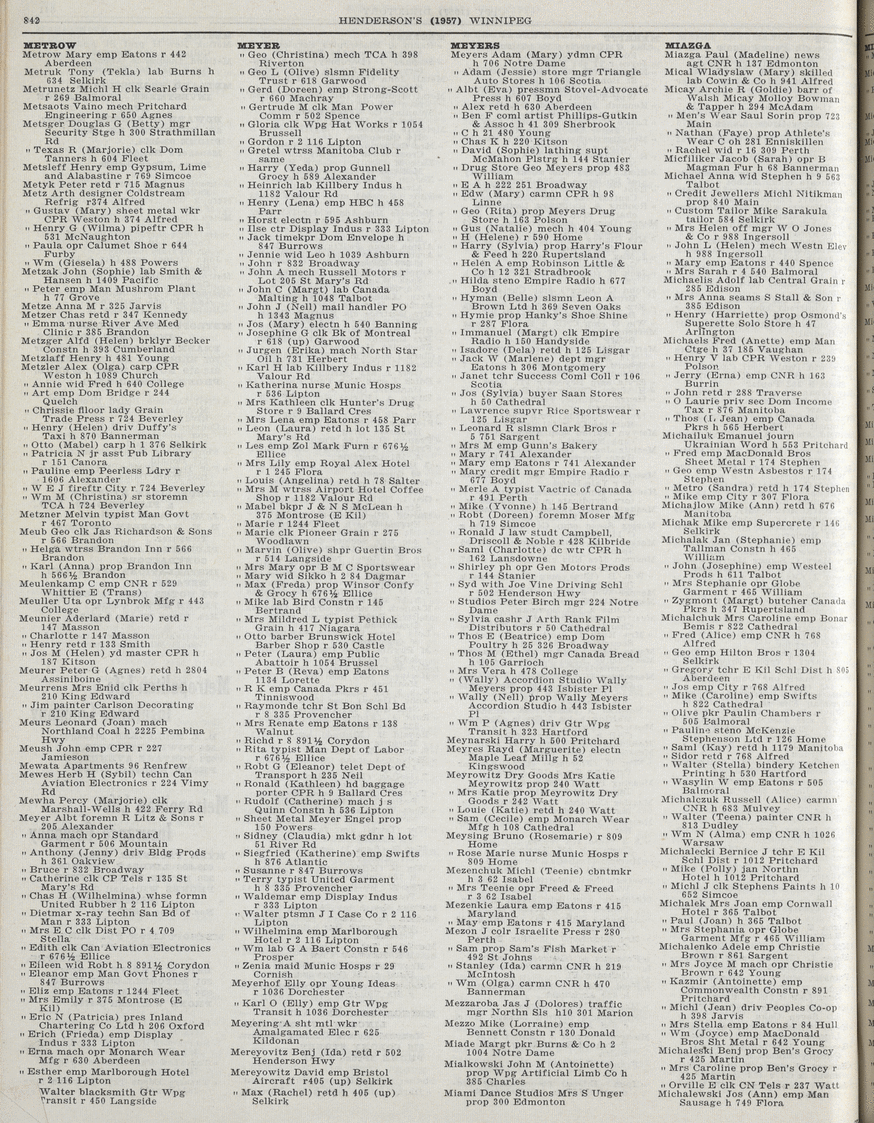 842
HENDERSON'S (1957) WINNIPEG
METROW
Metrow Mary emp Eatons r 442
Aberdeen
Metruk Tony (Tekla) lab Burns h
634 Selkirk
Metrunetz Michl H clk Searle Grain
r 269 Balmoral
Metsaots Vaino mech Pritchard
Engineering r 650 Agnes
Metsger Douglas G (Betty) mgr
Security Stge h 300 Strathmillan
Rd
" Texas R (Marjorie) clk Dom
Tanners h 604 Fleet
Metsleff Henry emp Gypsum, Lime
and Alabastine r 769 Simcoe
Metyk Peter retd r 715 Magnus
Metz Arth designer Coldstream
Refrig r374 Alfred
" Gustav (Mary) sheet metal wkr
CPR Weston h 374 Alfred
" Henry G (Wilma) pipeftr CPR h
531 McNaughton
" Paula opr Calumet Shoe r 644
Furby
" Wm (Giesela) h 488 Powers
Metzak John (Sophie) lab Smith &
Hansen h 1409 Pacific
" Peter emp Man Mushroom Plant
h 77 Grove
Metze Anna M r 325 Jarvis
Metzer Chas retd r 347 Kennedy
" Emma nurse River Ave Med
Clinic r 385 Brandon
Metzger Alfd (Helen) brklyr Becker
Constn h 393 Cumberland
Metzlaff Henry h 481 Young
Metzler Alex (Olga) carp CPR
Weston h 1089 Church
" Annie wid Fred h 640 College
" Art emp Dom Bridge r 244
Quelch
" Chrissie floor lady Grain
Trade Press r 724 Beverley
" Henry (Helen) driv Duffy's
Taxi h 870 Bannerman
" Otto (Mabel) carp h 1 376 Selkirk
" Patricia N jr asst Pub Library
r 151 Canora
" Pauline emp Peerless Ldry r
1606 Alexander
" W E J fireftr City r 724 Beverley
" Wm M (Christina) sr storemn
TCA h 724 Beverley
Metzner Melvin typist Man Govt
r 467 Toronto
Meub Geo clk Jas Richardson & Sons
r 566 Brandon
" Helga wtrss Brandon Inn r 566
Brandon
" Karl (Anna) prop Brandon Inn
h 566½ Brandon
Meulenkamp C emp CNR r 529
Whittier E (Trans)
Meuller Uta opr Lynbrok Mfg r 443
College
Meunier Aderlard (Marie) retd r
147 Masson
" Charlotte r 147 Masson
" Henry retd r 133 Smith
" Jos M (Helen) yd master CPR h
187 Kitson
Meurer Peter G (Agnes) retd h 2804
Assiniboine
Meurrens Mrs Enid clk Perths h
210 King Edward
" Jim painter Carlson Decorating
r 210 King Edward
Meurs Leonard (Joan) mach
Northland Coal h 2225 Pembina
Hwy
Meush John emp CPR r 227
Jamieson
Mewata Apartments 96 Renfrew
Mewes Herb H (Sybil) techn Can
Aviation Electronics r 224 Vimy
Rd
Mewha Percy (Marjorie) clk
Marshall-Wells h 422 Ferry Rd
Meyer Albt foremn R Litz & Sons r
205 Alexander
" Anna mach opr Standard
Garment r 506 Mountain
" Anthony (Jenny) driv Bldg Prods
h 361 Oakview
" Bruce r 832 Broadway
" Catherine clk CP Tels r 135 St
Mary's Rd
" Chas H (Wilhelmina) whse formn
United Rubber h 2 116 Lipton
" Dietmar x-ray techn San Bd of
Man r 333 Lipton
" Mrs E C clk Dist PO r 4 709
Stella
" Edith clk Can Aviation Electronics
r 676½ Ellice
" Eileen wid Robt h 8 891½ Corydon
" Eleanor emp Man Govt Phones r
847 Burrows
" Eliz emp Eatons r 1244 Fleet
" Mrs Emily r 375 Montrose (E
Kil)
" Eric N (Patricia) pres Inland
Chartering Co Ltd h 206 Oxford
" Erich (Frieda) emp Display
Indus r 333 Lipton
" Erna mach opr Monarch Wear
Mfg r 630 Aberdeen
" Esther emp Marlborough Hotel
r 2 116 Lipton
Walter blacksmith Gtr Wpg
Transit r 450 Langside
MEYER
" Geo (Christina) mech TCA h 398
Riverton
" Geo L (Olive) slsmn Fidelity
Trust r 618 Garwood
" Gerd (Doreen) emp Strong-Scott
r 660 Machray
" Gertrude M clk Man Power
Comn r 502 Spence
" Gloria clk Wpg Hat Works r 1054
Brussell
" Gordon r 2 116 Lipton
" Gretel wtrss Manitoba Club r
same
" Harry (Yeda) prop Gunnell
Grocy h 589 Alexander
" Heinrich lab Killbery Indus h
1182 Valour Rd
" Henry (Lena) emp HBC h 458
Parr
" Horst electn r 595 Ashburn
" Ilse ctr Display Indus r 333 Lipton
" Jack timekpr Dom Envelope h
847 Burrows
" Jennie wid Leo h 1039 Ashburn
" John r 832 Broadway
" John A mech Russell Motors r
Lot 205 St Mary's Rd
" John C (Margt) lab Canada
Malting h 1048 Talbot
" John J (Nell) mail handler PO
h 1343 Magnus
" Jos (Mary) electn h 540 Banning
" Josephine G clk Bk of Montreal
r 618 (up) Garwood
" Jurgen (Erika) mach North Star
Oil h 731 Herbert
" Karl H lab Killbery Indus r 1182
Valour Rd
" Katherina nurse Munic Hosps
r 536 Lipton
" Mrs Kathleen clk Hunter's Drug
Store r 9 Ballard Cres
" Mrs Lena emp Eatons r 458 Parr
" Leon (Laura) retd h lot 135 St
Mary's Rd
" Les emp Zol Mark Furn r 676½
Ellice
" Mrs Lily emp Royal Alex Hotel
r 1 245 Flora
" Louis (Angelina) retd h 78 Salter
" Mrs M wtrss Airport Hotel Coffee
Shop r 1182 Valour Rd
" Mabel bkpr J & N S McLean h
375 Montrose (E Kil)
" Marie r 1244 Fleet
" Marie clk Pioneer Grain r 275
Woodlawn
" Marvin (Olive) shpr Guertin Bros
r 514 Langside
" Mrs Mary opr B M C Sportswear
" Mary wid Sikko h 2 84 Dagmar
" Max (Freda) prop Winsor Confy
& Grocy h 676½ Ellice
" Mike lab Bird Constn r 145
Bertrand
" Mrs Mildred L typist Pethick
Grain h 417 Niagara
" Otto barber Brunswick Hotel
Barber Shop r 530 Castle
" Peter (Laura) emp Public
Abattoir h 1054 Brussel
" Peter B (Reva) emp Eatons
1134 Lorette
" R K emp Canada Pkrs r 451
Tinniswood
" Raymonde tchr St Bon Schl Bd
r 8 335 Provencher
" Mrs Renate emp Eatons r 138
Walnut
" Richd r 8 891½ Corydon
" Rita typist Man Dept of Labor
r 676½ Ellice
" Robt G (Eleanor) telet Dept of
Transport h 235 Neil
" Ronald (Kathleen) hd baggage
porter CPR h 9 Ballard Cres
" Rudolf (Catherine) mach j s
Quinn Constn h 536 Lipton
" Sheet Metal Meyer Engel prop
150 Powers
" Sidney (Claudia) mkt gdnr h lot
51 River Rd
" Siegfried (Katherine) emp Swifts
h 876 Atlantic
" Susanne r 847 Burrows
" Terry typist United Garment
h 8 335 Provencher
" Waldemar emp Display Indus
r 333 Lipton
" Walter ptsmn J I Case Co r 2 116
Lipton
" Wilhelmina emp Marlborough
Hotel r 2 116 Lipton
" Wm lab G A Baert Constn r 546
Prosper
" Zenia maid Munic Hosps r 29
Cornish
Meyerhof Elly opr Young Ideas
r 1036 Dorchester
" Karl O (Elly) emp Gtr Wpg
Transit h 1036 Dorchester
Meyering A sht mtl wkr
Amalgamated Elec r 625
Kildonan
Mereyovitz Benj (Ida) retd r 502
Henderson Hwy
Mereyowitz David emp Bristol
Aircraft r405 (up) Selkirk
" Max (Rachel) retd h 405 (up)
Selkirk
MEYERS
Meyers Adam (Mary) ydmn CPR
h 706 Notre Dame
" Adam (Jessie) store mgr Triangle
Auto Stores h 106 Scotia
" Albt (Eva) pressmn Stovel-Advocate
Press h 607 Boyd
" Alex retd h 630 Aberdeen
" Ben F coml artist Phillips-Gutkin
& Assoc h 41 309 Sherbrook
" C h 21 480 Young
" Chas K h 220 Kitson
" David (Sophie) lathing supt
McMahon Plstrg h 144 Stanier
" Drug Store Geo Meyers prop 483
William
" E A h 222 251 Broadway
" Edw (Mary) carmn CPR h 98
Linne
" Geo (Rita) prop Meyers Drug
Store h 163 Polson
" Gus (Natalie) mech h 404 Young
" H (Helene) r 590 Home
" Harry (Sylvia) prop Harry's Flour
& Feed h 220 Rupertsland
" Helen A emp Robinson Little &
Co h 12 321 Stradbrook
" Hilda steno Empire Radio h 677
Boyd
" Hyman (Belle) slsmn Leon A
Brown Ltd h 369 Seven Oaks
" Hymie prop Hanky's Shoe Shine
r 287 Flora
" Immanuel (Margt) clk Empire
Radio h 150 Handyside
" Isadore (Dela) retd h 125 Lisgar
" Jack W (Marlene) dept mgr
Eatons h 306 Montgomery
" Janet tchr Success Coml Coll r 106
Scotia
" Jos (Sylvia) buyer Saan Stores
h 50 Cathedral
" Lawrence supvr Rice Sportswear r
125 Lisgar
" Leonard R slsmn Clark Bros r
5 751 Sargent
" Mrs M emp Gunn's Bakery
" Mary r 741 Alexander
" Mary emp Eatons r 741 Alexander
" Mary credit mgr Empire Radio r
677 Boyd
" Merle A typist Vactric of Canada
r 491 Perth
" Mike (Yvonne) h 145 Bertrand
" Robt (Doreen) foremn Moser Mfg
h 719 Simcoe
" Ronald J law studt Campbell,
Driscoll & Noble r 428 Kilbride
" Saml (Charlotte) dc wtr CPR h
162 Lansdowne
" Shirley ph opr Gen Motors Prods
r 144 Stanier
" Syd with Joe Vine Driving Schl
r 502 Henderson Hwy
" Studios Peter Birch mgr 224 Notre
Dame
" Sylvia cashr J Arth Rank Film
Distributors r 50 Cathedral
" Thos E (Beatrice) emp Dom
Poultry h 25 326 Broadway
" Thos M (Ethel) mgr Canada Bread
h 105 Garrioch
" Mrs Vera h 478 College
" (Wally) Accordion Studio Wally
Meyers prop 443 Isbister Pl
" Wally (Nell) prop Wally Meyers
Accordion Studio h 443 Isbister
Pl
" Wm P (Agnes) driv Gtr Wpg
Transit h 323 Hartford
Meynarski Harry h 500 Pritchard
Meyres Rayd (Marguerite) electn
Maple Leaf Millg h 52
Kingswood
Meyrowitz Dry Goods Mrs Katie
Meyrowitz prop 240 Watt
" Mrs Katie prop Meyrowitz Dry
Goods r 242 Watt
" Louie (Katie) retd h 240 Watt
" Sam (Cecile) emp Monarch Wear
Mfg h 108 Cathedral
Meysing Bruno (Rosemarie) r 809
Home
" Rose Marie nurse Munic Hosps r
809 Home
Mezenchuk Michl (Teenie) cbntmkr
h 3 62 Isabel
" Mrs Teenie opr Freed & Freed
r 3 62 Isabel
Mezenkie Laura emp Eatons r 415
Maryland
" May emp Eatons r 415 Maryland
Mezon J colr Israelite Press r 280
Perth
" Sam prop Sam's Fish Market r
492 St Johns
" Stanley (Ida) carmn CNR h 219
McIntosh
" Wm (Olga) carmn CNR h 470
Bannerman
Mezzaroba Jas J (Dolores) traffic
mgr Northn Sls h10 301 Marion
Mezzo Mike (Lorraine) emp
Bennett Constn r 130 Donald
Miade Margt pkr Burns & Co h 2
1004 Notre Dame
Mialkowski John M (Antoinette)
prop Wpg Artificial Limb Co h
385 Charles
Miami Dance Studios Mrs S Unger
prop 300 Edmonton
MIAZGA
Miazga Paul (Madeline) news
agt CNR h 137 Edmonton
Mical Wladyslaw (Mary) skilled
lab Cowin & Co h 941 Alfred
Micay Archie R (Goldie) barr of
Walsh Micay Molloy Bowman
& Tapper h 294 McAdam
" Men's Wear Saul Sorin prop 723
Main
" Nathan (Faye) prop Athlete's
Wear C oh 281 Enniskillen
" Rachel wid r 16 309 Perth
Micfiliker Jacob (Sarah) opr B
Magman Fur h 68 Bannerman
Michael Anna wid Stephen h 9 563
Talbot
" Credit Jewellers Michl Nitikman
prop 840 Main
" Custom Tailor Mike Sarakula
tailor 584 Selkirk
" Mrs Helen off mgr W O Jones
& Co r 988 Ingersoll
" John L (Helen) mech Westn Elev
h 988 Ingersoll
" Mary emp Eatons r 440 Spence
" Mrs Sarah r 4 540 Balmoral
Michaelis Adolf lab Central Grain r
285 Edison
" Mrs Anna seams S Stall & Son r
385 Edison
" Henry (Harriette) prop Osmond's
Superette Solo Store h 47
Arlington
Michaels Fred (Anette) emp Man
Ctge h 37 185 Vaughan
" Henry V lab CPR Weston r 239
Polson
" Jerry (Erna) emp CNR h 163
Burrin
" John retd r 288 Traverse
" O Laurie priv sec Dom Income
Tax r 876 Manitoba
" Thos (L Jean) emp Canada
Pkrs h 565 Herbert
Michailuk Emanuel journ
Ukrainian Word h 553 Pritchard
" Fred emp MacDonald Bros
Sheet Metal r 174 Stephen
" Geo emp Westn Asbestos r 174
Stephen
" Metro (Sandra) retd h 174 Stephen
" Mike emp City r 307 Flora
Michajlow Mike (Ann) retd h 676
Manitoba
Michak Mike emp Supercrete r 146
Selkirk
Michalak Jan (Stephanie) emp
Tallman Constn h 465
William
" John (Josephine) emp Westeel
Prods h 611 Talbot
" Mrs Stephanie opr Globe
Garment r 465 William
" Zygmont (Margt) butcher Canada
Pkrs h 347 Rupertsland
Michalchuk Mrs Caroline emp Bonar
Bemis r 822 Cathedral
" Fred (Alice) emp CNR h 768
Alfred
" Geo emp Hilton Bros r 1304
Selkirk
" Gregory tchr E Kil Schl Dist h 805
Aberdeen
" Jos emp City r 768 Alfred
" Mike (Caroline) emp Swifts
h 822 Cathedral
" Olive pkr Paulin Chambers r
505 Balmoral
" Pauline steno McKenzie
Stephenson Ltd r 126 Home
" Saml (Kay) retd h 1179 Manitoba
" Sidor retd r 768 Alfred
" Walter (Stella) bindery Ketchen
Printing h 530 Hartford
" Wasylin W emp Eatons r 505
Balmoral
Michalczuk Russell (Alice) carmn
CNR h 683 Mulvey
" Walter (Teena) painter CNR h
813 Dudley
" Wm N (Alma) emp CNR h 1026
Warsaw
Michalecki Bernice J tchr E Kil
Schl Dist r 1012 Pritchard
" Mike (Polly) jan Northn
Hotel h 1012 Pritchard
" Michl J clk Stephens Paints h 10
652 Simcoe
Michalek Mrs Joan emp Cornwall
Hotel r 365 Talbot
" Paul (Joan) h 365 Talbot
" Mrs Stephania opr Globe
Garment Mfg r 465 William
Michalenko Adele emp Christie
Brown r 861 Sargent
" Mrs Joyce M mach opr Christie
Brown r 642 Young
" Kazmir (Antoinette) emp
Commonwealth Constn r 891
Pritchard
" Michl (Jean) driv Peoples Co-op
h 398 Jarvis
" Mrs Stella emp Eatons r 84 Hull
" Wm (Joyce) emp MacDonald
Bros Sht Metal r 642 Young
Michaleski Benj prop Ben's Grocy
r 425 Martin
" Mrs Caroline prop Ben's Grocy r
425 Martin
" Orville E clk CN Tels r 237 Watt
Michalewski Jos (Ann) emp Man
Sausage h 749 Flora